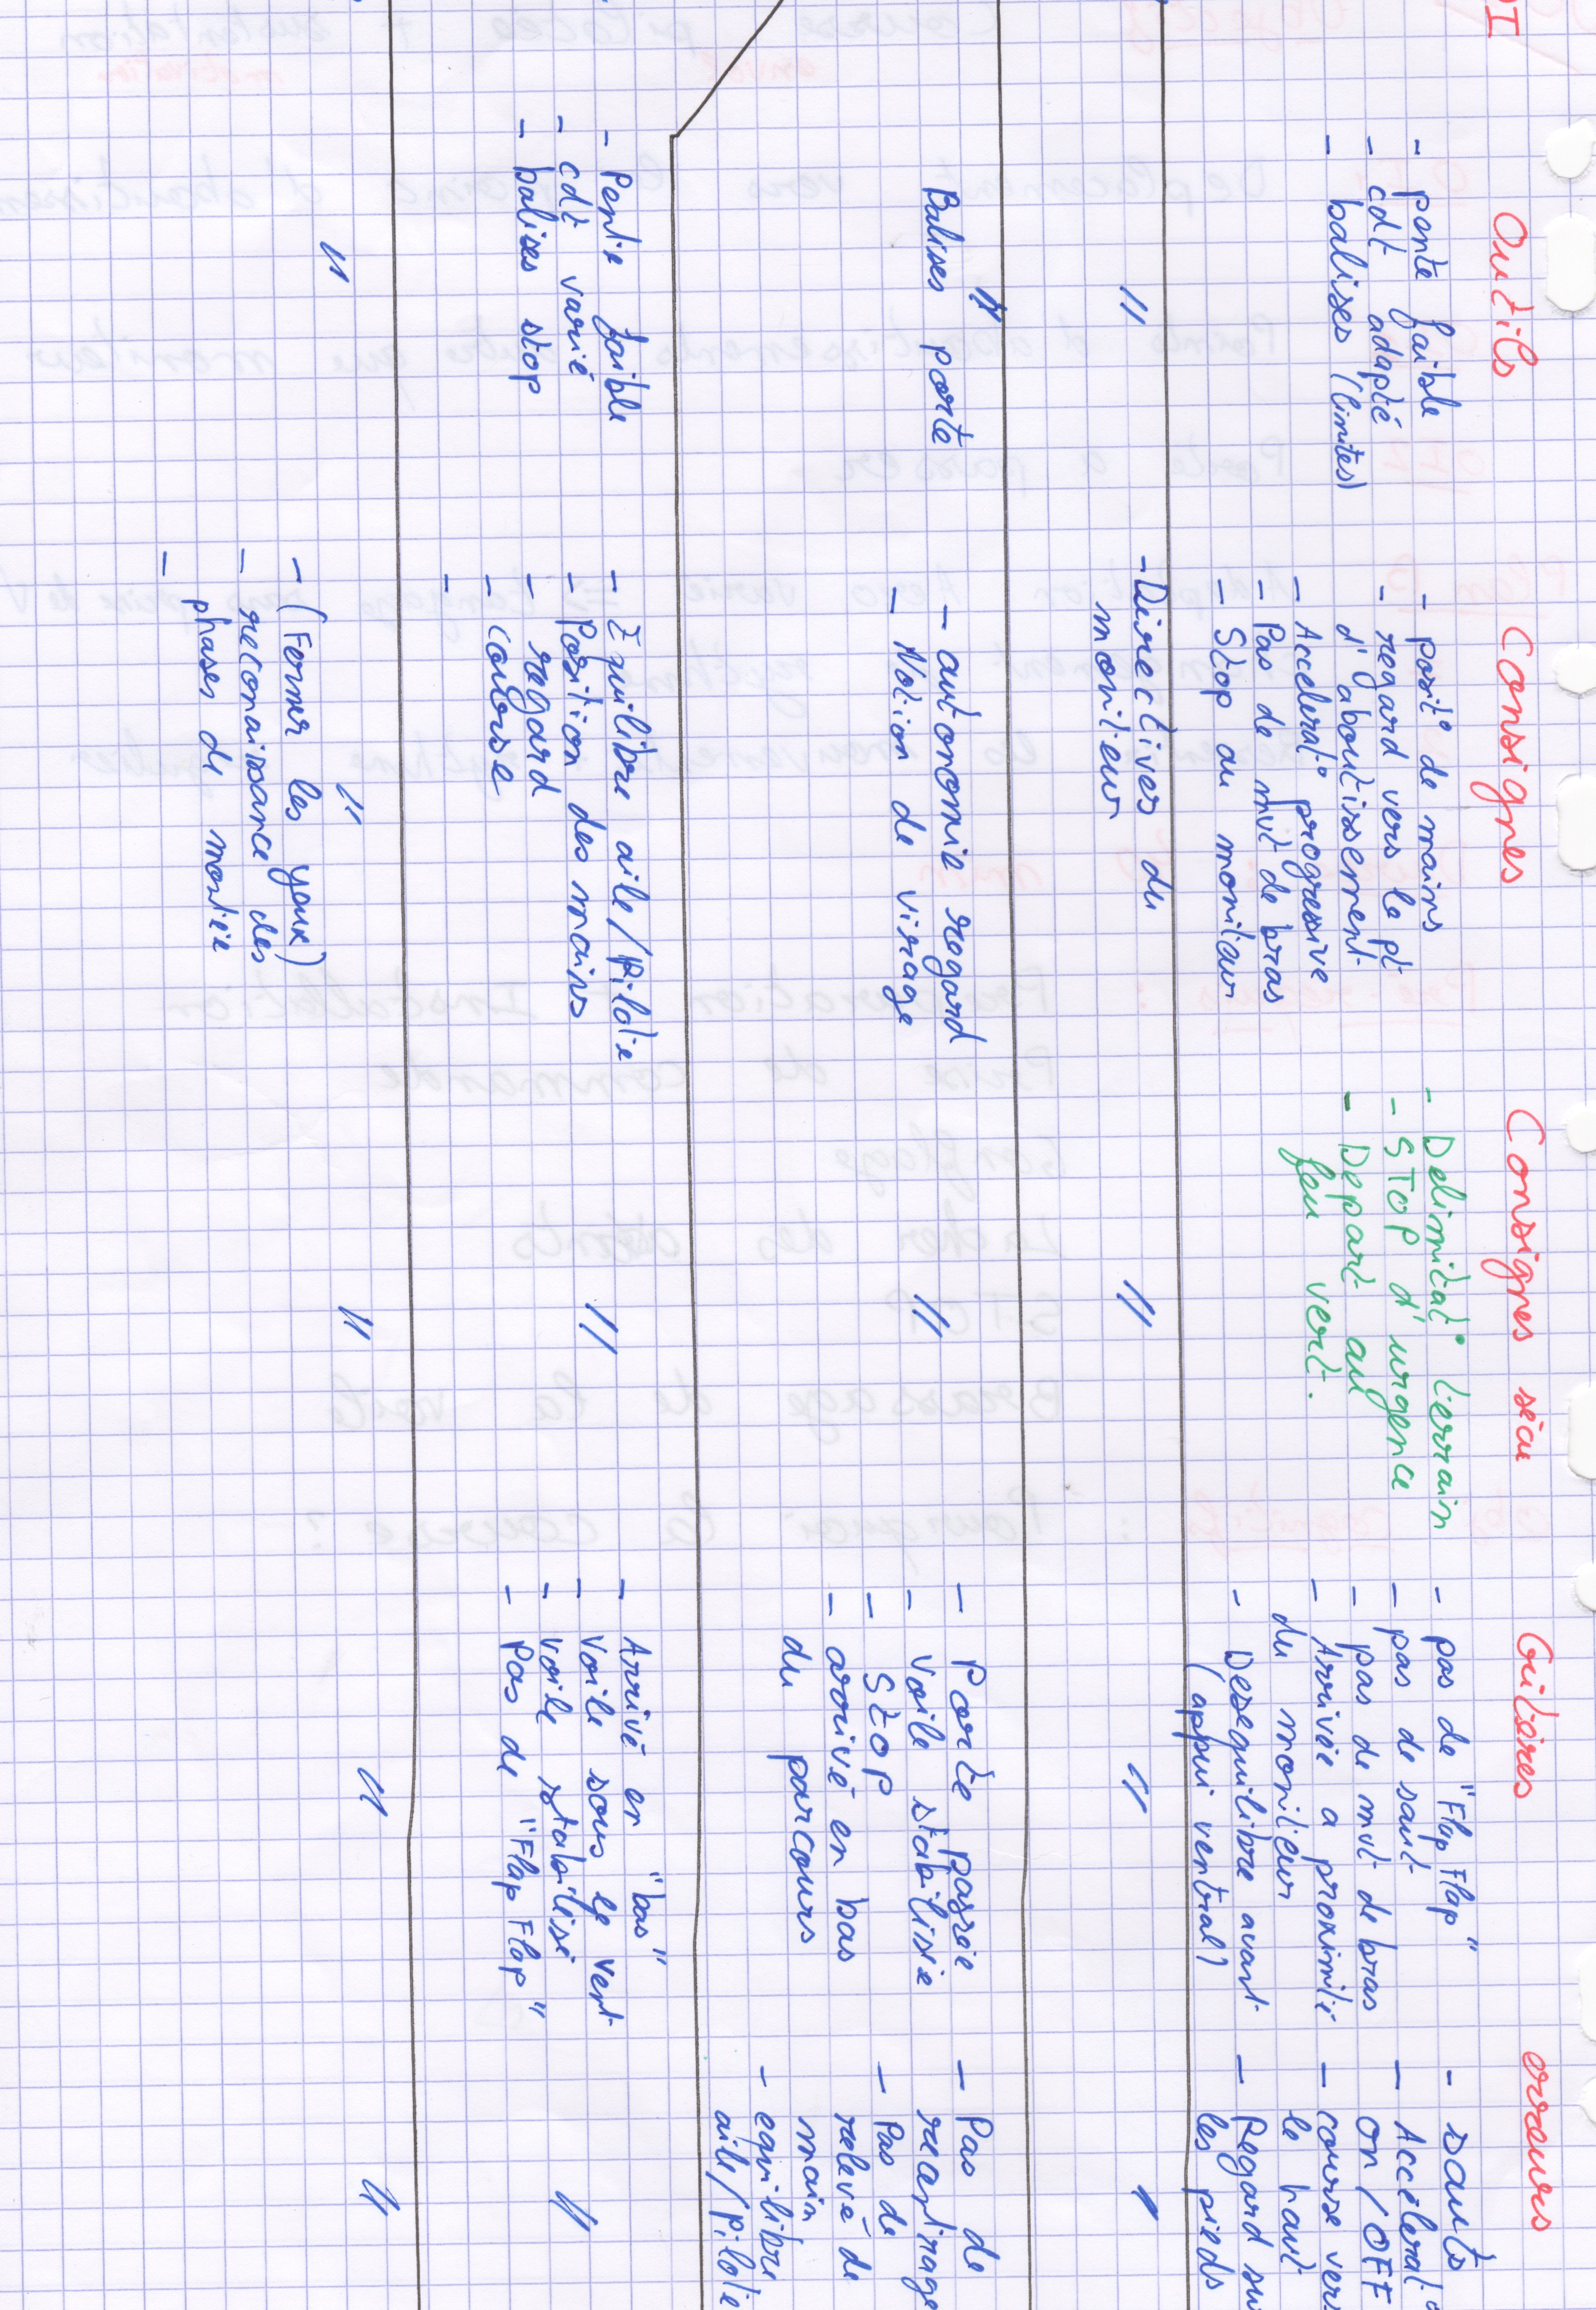 OI
Outils
Consignes
Consignes sécu
Critères
erreurs
- pente faible
- cdt adapté
- balises (limites)
- posit° de mains
- regard vers le pt
d'aboutissement
- Accelerat° progressive
- Pas de mvt de bras
- Stop au moniteur
- Delimitat° terrain
- STOP d'urgence
- Depart au
feu vert.
- pas de "Flap Flap"
- pas de saut
- pas de mvt de bras
- Arrivée a proximité
du moniteur
- Desequilibre avant
(appui ventral)
- sauts
- Accelerat°
on / OFF
- course vers
le haut
- Regard sur
les pieds
"
- Directives du
moniteur
"
"
"
"
Balises porte
- autonomie regard
- Notion de virage
"
- Porte passée
- Voile stabilisée
- Stop
- arrivé en bas
du parcours
- Pas de
recentrage
- Pas de
relevé de
main
- equilibre
aile/pilote
- Pente faible
- cdt varié
- balises stop
- Equilibre aile/pilote
- Position des mains
- regard
- course
-
"
- Arrivé en "bas"
- Voile sous le vent
- Voile stabilisé
- Pas de "Flap Flap"
"
"
"
- (Fermer les yeux)
- reconnaissance des
phases de montée
-
"
"
"